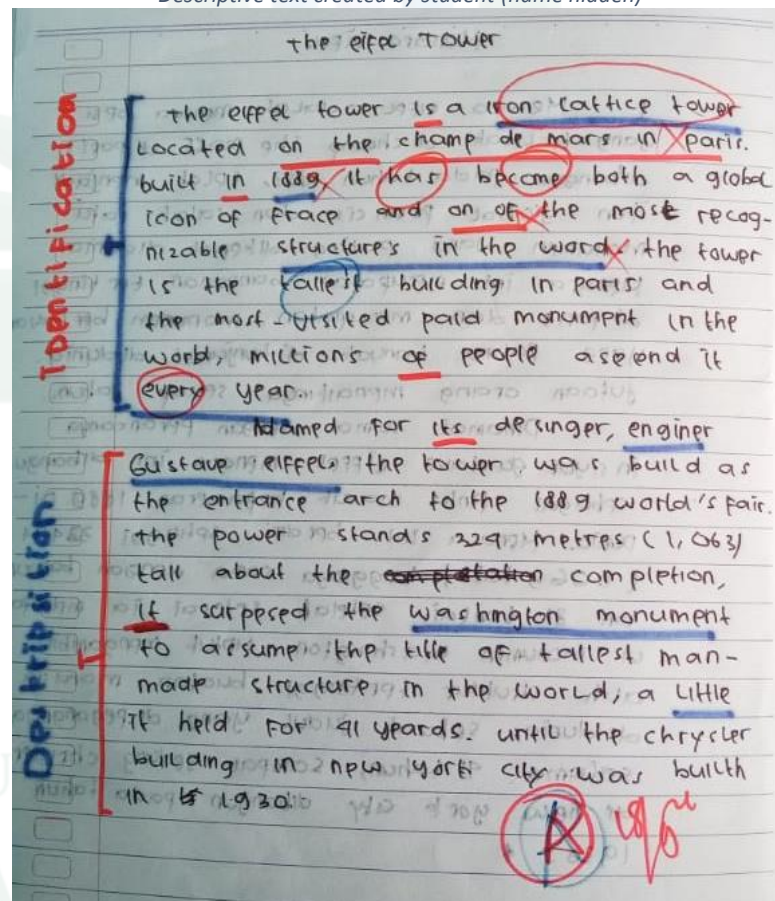 Descriptive text created by student (name hidden)
the eifel Tower
the eiffel tower is a iron lattice tower
Located on the champ de mars in paris.
built in 1889, it has become both a global
icon of frace and on of the most recog-
nizable structure's in the word. the tower
is the tallest building in paris and
the most-visited paid monument in the
world, millions of people asend it
every year.
Named for its desinger, enginer
Gustave eiffel, the tower was build as
the entrance arch to the 1889 world's fair.
the power stands 324 metres (1,063)
tall about the completion,
it surpesed the washington monument
to assume the title of tallest man-
made structure in the world, a little
it held for 41 yeards. until the chrysler
building in new york city was builth
in 1930.
Identification
Deskripsition
A